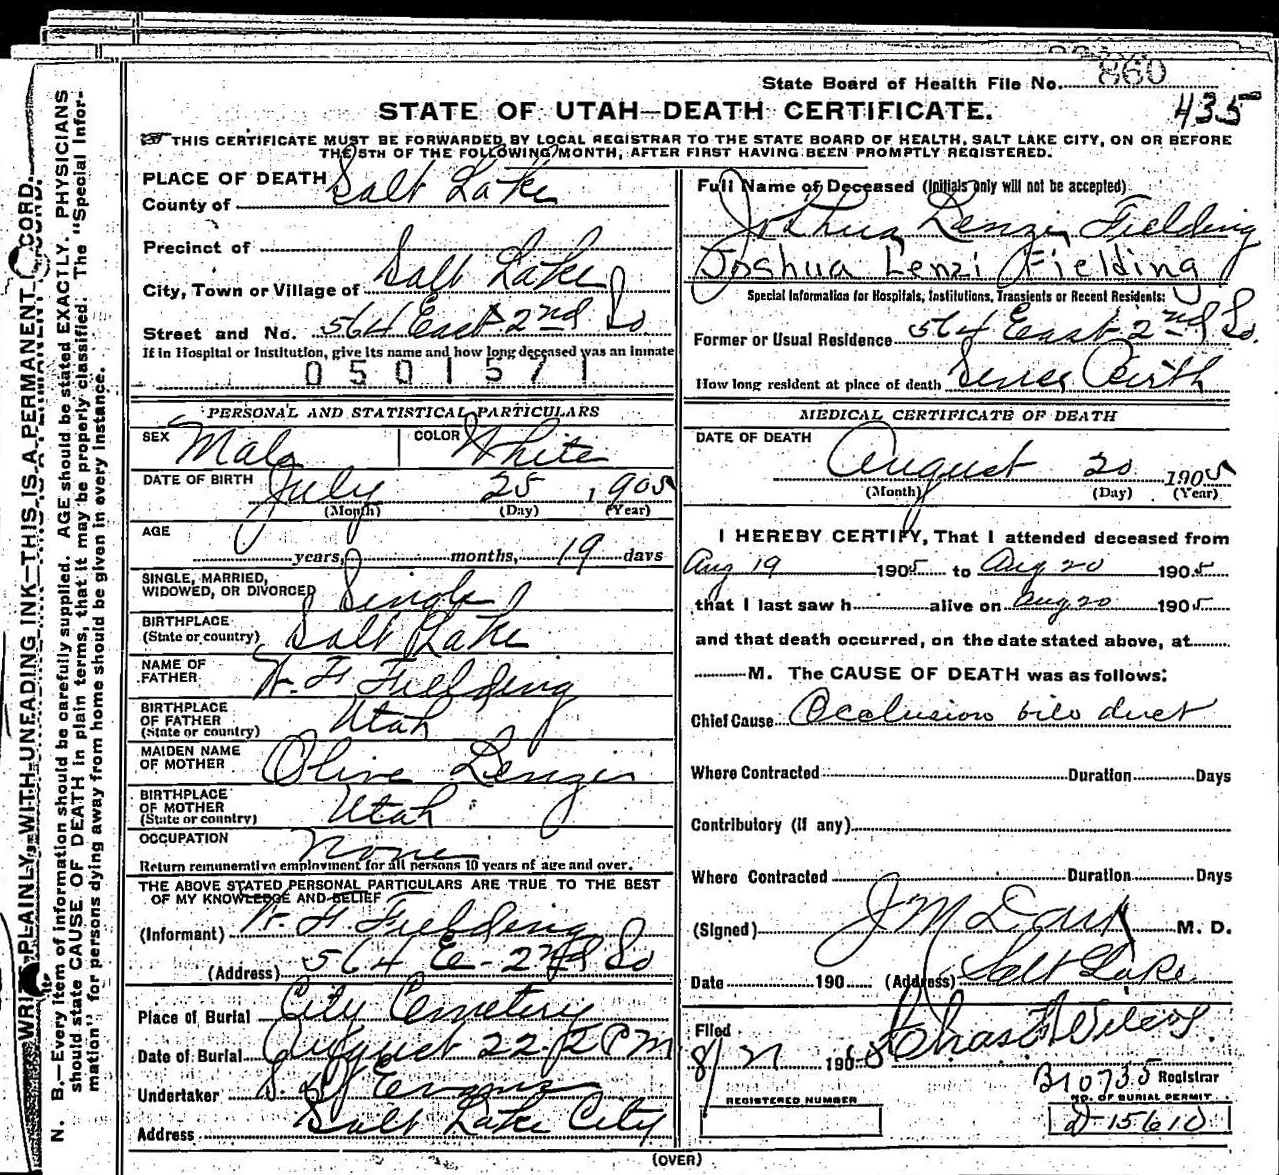 State Board of Health File No. 860
435
STATE OF UTAH—DEATH CERTIFICATE.
THIS CERTIFICATE MUST BE FORWARDED BY LOCAL REGISTRAR TO THE STATE BOARD OF HEALTH, SALT LAKE CITY, ON OR BEFORE
THE 5TH OF THE FOLLOWING MONTH, AFTER FIRST HAVING BEEN PROMPTLY REGISTERED.
PLACE OF DEATH
County of Salt Lake
Precinct of
City, Town or Village of Salt Lake
Street and No. 564 East 2nd So
If in Hospital or Institution, give its name and how long deceased was an inmate
0501571
PERSONAL AND STATISTICAL PARTICULARS
SEX Male COLOR White
DATE OF BIRTH July 25, 1905
(Month) (Day) (Year)
AGE
years, months, 19 days
SINGLE, MARRIED,
WIDOWED, OR DIVORCED Single
BIRTHPLACE
(State or country) Salt Lake
NAME OF
FATHER W. F. Fielding
BIRTHPLACE
OF FATHER
(State or country) Utah
MAIDEN NAME
OF MOTHER Olive Lenzi
BIRTHPLACE
OF MOTHER
(State or country) Utah
OCCUPATION None
Return remunerative employment for all persons 10 years of age and over.
THE ABOVE STATED PERSONAL PARTICULARS ARE TRUE TO THE BEST
OF MY KNOWLEDGE AND BELIEF
(Informant) W. F. Fielding
(Address) 564 E - 2nd So
Place of Burial City Cemetery
Date of Burial August 22- 2 PM
Undertaker Evans
Address Salt Lake City
Full Name of Deceased (Initials only will not be accepted)
Joshua Lenzi Fielding
Joshua Lenzi Fielding
Special Information for Hospitals, Institutions, Transients or Recent Residents:
Former or Usual Residence 564 East 2nd So.
How long resident at place of death Since Birth
MEDICAL CERTIFICATE OF DEATH
DATE OF DEATH
August 20 1905
(Month) (Day) (Year)
I HEREBY CERTIFY, That I attended deceased from
Aug 19 1905 to Aug 20 1905
that I last saw h alive on Aug 20 1905
and that death occurred, on the date stated above, at
M. The CAUSE OF DEATH was as follows:
Chief Cause Occlusion bile duct
Where Contracted Duration Days
Contributory (if any)
Where Contracted Duration Days
(Signed) J M Dart M. D.
Date 190 (Address) Salt Lake
Filed
8/21 190 Chas F Wilcox.
B10735 Registrar
REGISTERED NUMBER
NO. OF BURIAL PERMIT
D 15610
(OVER)
WRITE PLAINLY, WITH UNFADING INK—THIS IS A PERMANENT RECORD.
N. B.—Every item of information should be carefully supplied. AGE should be stated EXACTLY. PHYSICIANS
should state CAUSE OF DEATH in plain terms, that it may be properly classified. The "Special Infor-
mation" for persons dying away from home should be given in every instance.